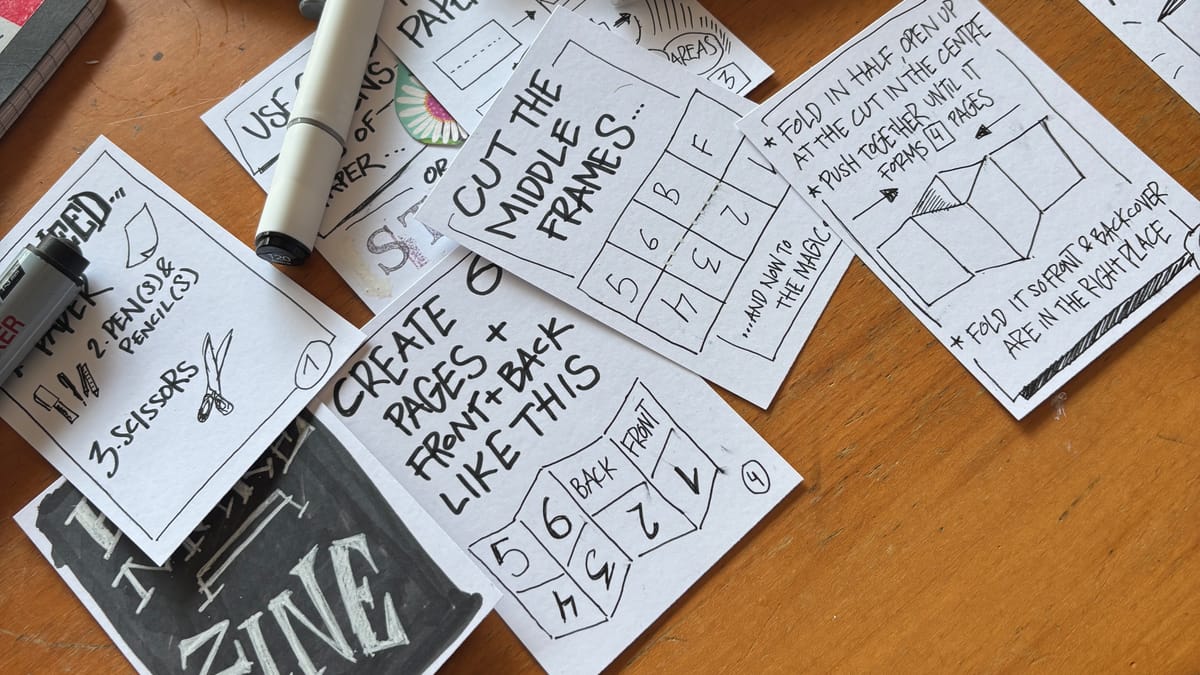 PAPER
AREAS
3
USE
OF
OR
NEED...
2. PEN(S) &
PENCIL(S)
3. SCISSORS
1
ZINE
CREATE 6
PAGES +
FRONT + BACK
LIKE THIS
5 6 BACK FRONT
4 3 2 1
4
CUT THE
MIDDLE
FRAMES...
5 6 B F
4 3 2
...AND NOW TO
THE MAGIC
* FOLD IN HALF, OPEN UP
AT THE CUT IN THE CENTRE
* PUSH TOGETHER UNTIL IT
FORMS 4 PAGES
* FOLD IT SO FRONT & BACK COVER
ARE IN THE RIGHT PLACE